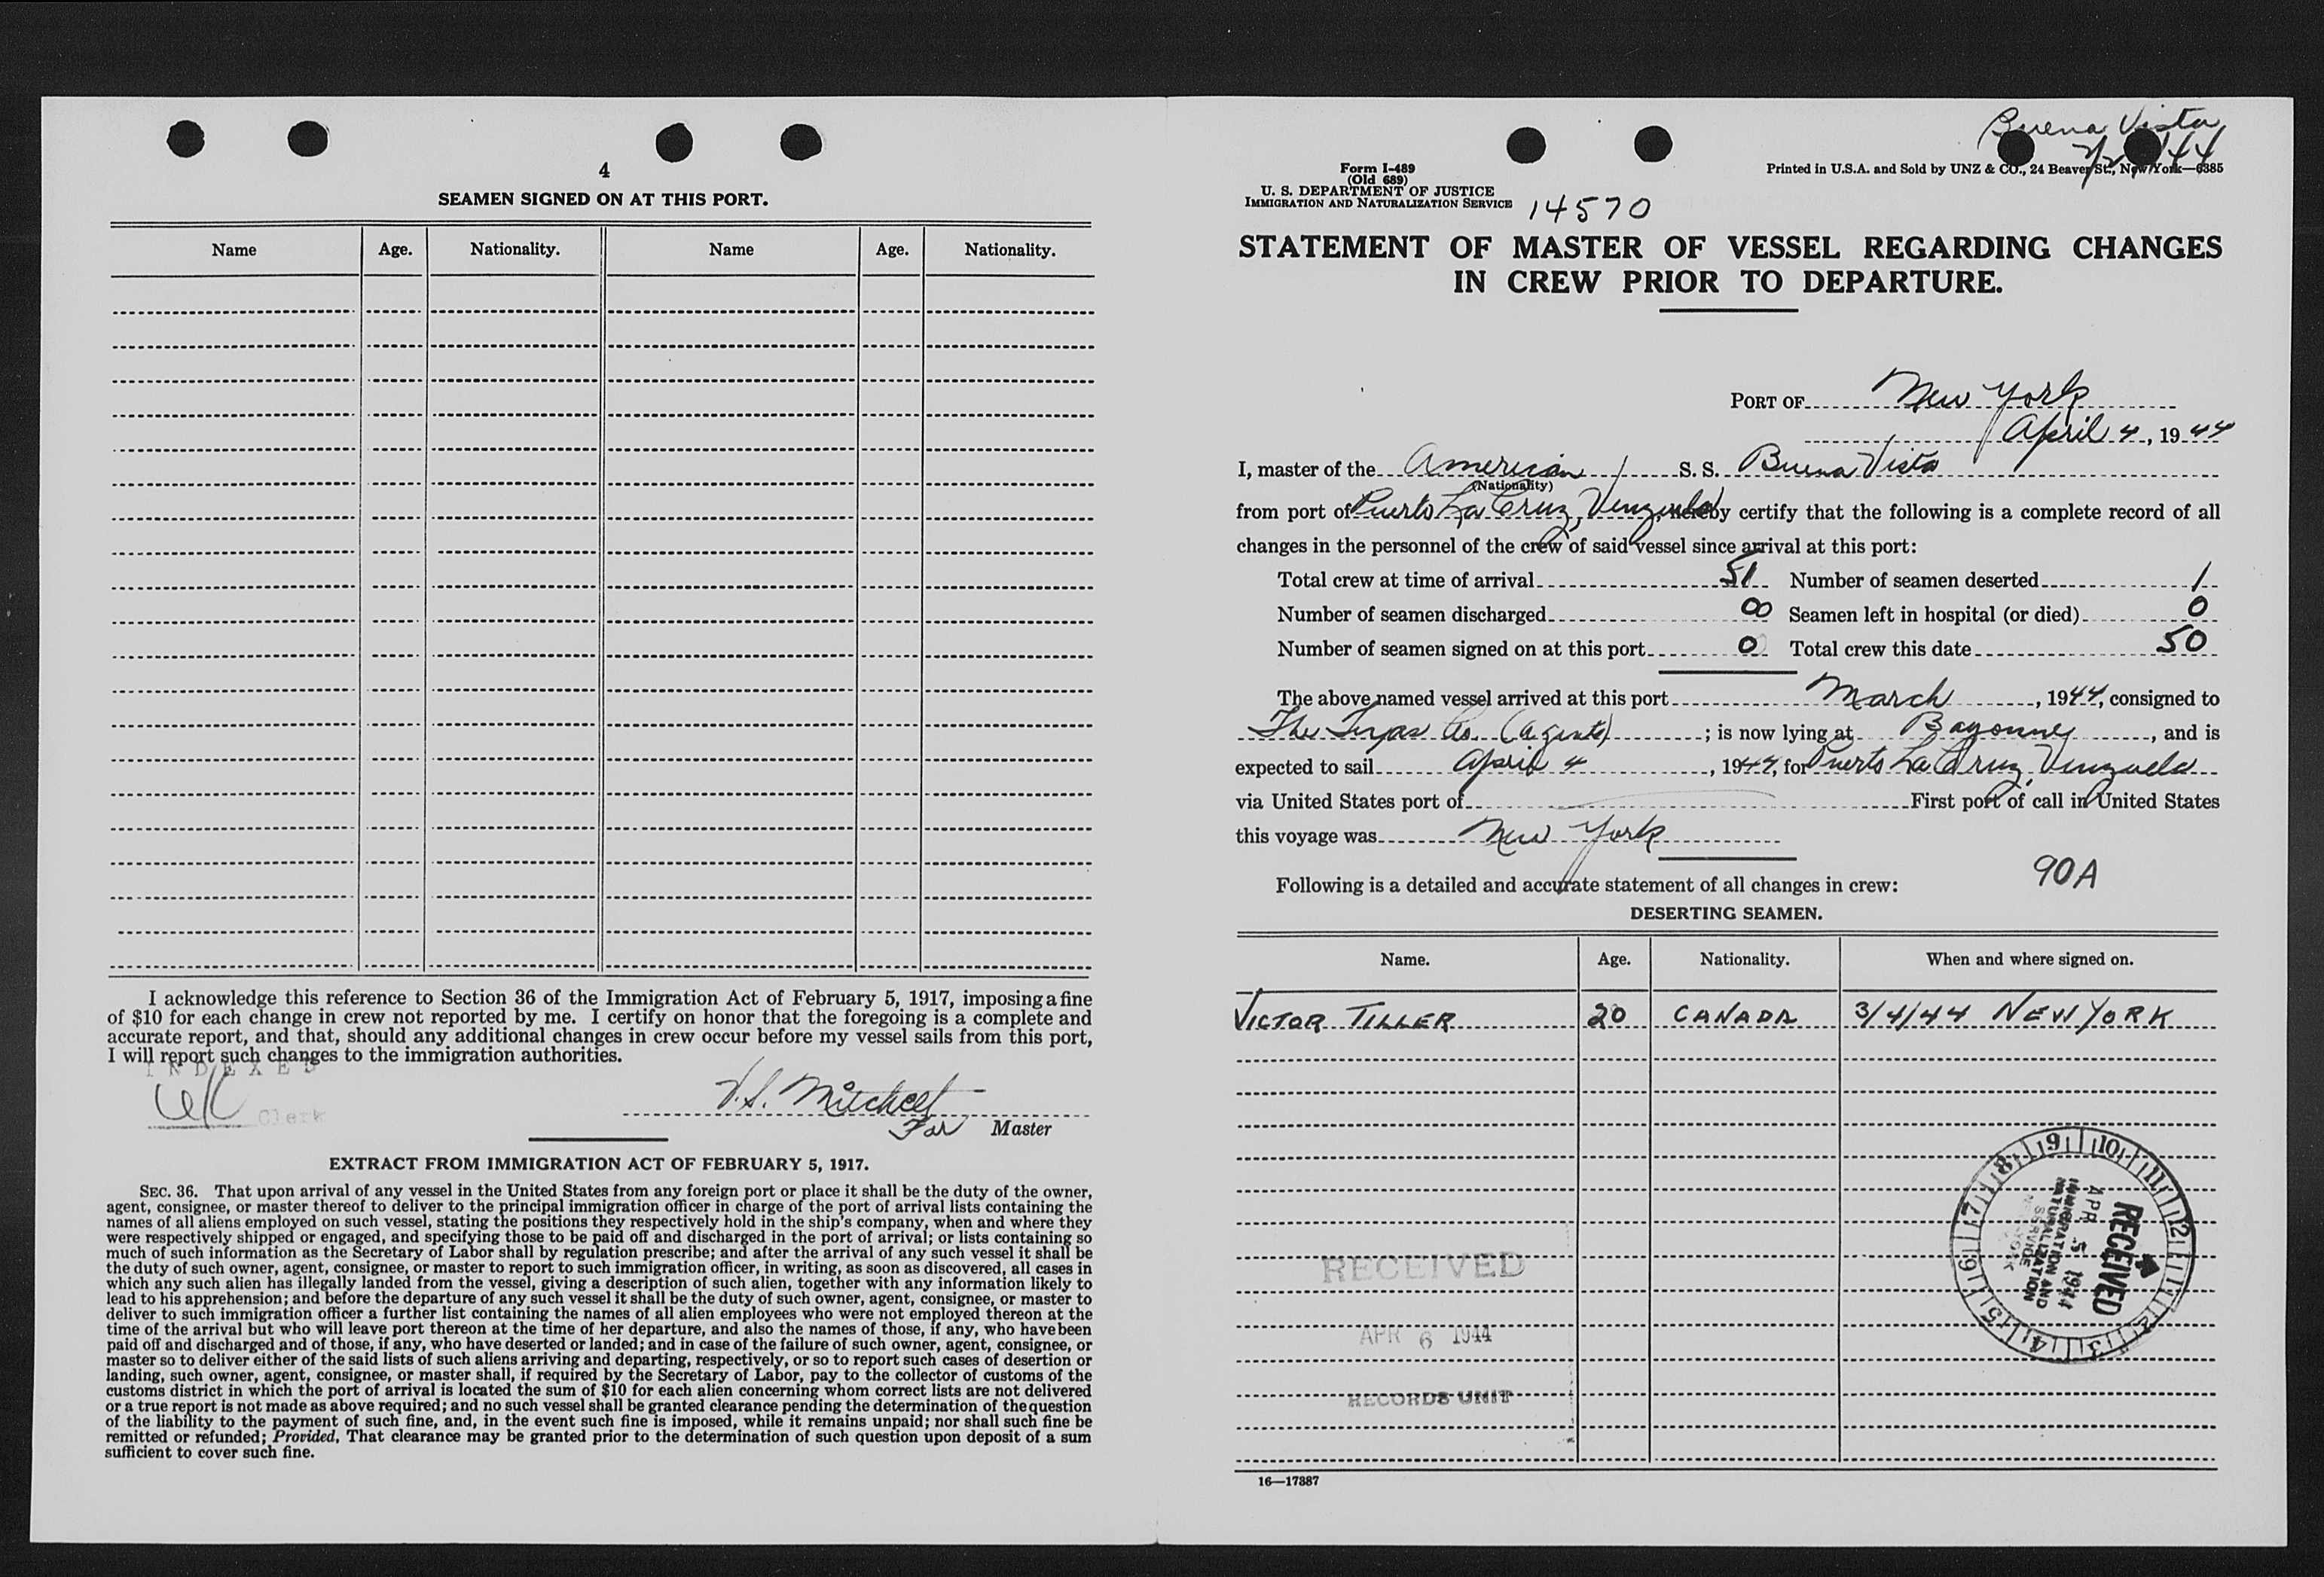 4
SEAMEN SIGNED ON AT THIS PORT.
Name Age. Nationality. Name Age. Nationality.
I acknowledge this reference to Section 36 of the Immigration Act of February 5, 1917, imposing a fine
of $10 for each change in crew not reported by me. I certify on honor that the foregoing is a complete and
accurate report, and that, should any additional changes in crew occur before my vessel sails from this port,
I will report such changes to the immigration authorities.
INDEXED
Clerk
V.S. Mitchell
For Master
EXTRACT FROM IMMIGRATION ACT OF FEBRUARY 5, 1917.
SEC. 36. That upon arrival of any vessel in the United States from any foreign port or place it shall be the duty of the owner,
agent, consignee, or master thereof to deliver to the principal immigration officer in charge of the port of arrival lists containing the
names of all aliens employed on such vessel, stating the positions they respectively hold in the ship's company, when and where they
were respectively shipped or engaged, and specifying those to be paid off and discharged in the port of arrival; or lists containing so
much of such information as the Secretary of Labor shall by regulation prescribe; and after the arrival of any such vessel it shall be
the duty of such owner, agent, consignee, or master to report to such immigration officer, in writing, as soon as discovered, all cases in
which any such alien has illegally landed from the vessel, giving a description of such alien, together with any information likely to
lead to his apprehension; and before the departure of any such vessel it shall be the duty of such owner, agent, consignee, or master to
deliver to such immigration officer a further list containing the names of all alien employees who were not employed thereon at the
time of the arrival but who will leave port thereon at the time of her departure, and also the names of those, if any, who have been
paid off and discharged and of those, if any, who have deserted or landed; and in case of the failure of such owner, agent, consignee, or
master so to deliver either of the said lists of such aliens arriving and departing, respectively, or so to report such cases of desertion or
landing, such owner, agent, consignee, or master shall, if required by the Secretary of Labor, pay to the collector of customs of the
customs district in which the port of arrival is located the sum of $10 for each alien concerning whom correct lists are not delivered
or a true report is not made as above required; and no such vessel shall be granted clearance pending the determination of the question
of the liability to the payment of such fine, and, in the event such fine is imposed, while it remains unpaid; nor shall such fine be
remitted or refunded; Provided, That clearance may be granted prior to the determination of such question upon deposit of a sum
sufficient to cover such fine.
Buena Vista
Form I-489
(Old 689)
U. S. DEPARTMENT OF JUSTICE
IMMIGRATION AND NATURALIZATION SERVICE 14570
Printed in U.S.A. and Sold by UNZ & CO., 24 Beaver St., New York—6385
STATEMENT OF MASTER OF VESSEL REGARDING CHANGES
IN CREW PRIOR TO DEPARTURE.
PORT OF New York
April 4, 1944
I, master of the American S. S. Buena Vista
(Nationality)
from port of Puerto La Cruz, Venzuela, hereby certify that the following is a complete record of all
changes in the personnel of the crew of said vessel since arrival at this port:
Total crew at time of arrival 51 Number of seamen deserted 1
Number of seamen discharged 00 Seamen left in hospital (or died) 0
Number of seamen signed on at this port 0 Total crew this date 50
The above named vessel arrived at this port March, 1944, consigned to
The Texas Co. (agents); is now lying at Bayonne, and is
expected to sail April 4, 1944, for Puerto La Cruz, Venzuela
via United States port of First port of call in United States
this voyage was New York
Following is a detailed and accurate statement of all changes in crew: 90A
DESERTING SEAMEN.
Name. Age. Nationality. When and where signed on.
VICTOR TILLER 20 CANADA 3/4/44 NEW YORK
RECEIVED
APR 6 1944
RECORDS UNIT
9 10 11 12 1 2 3 4 5 6 7 8
RECEIVED
APR 5 1944
IMMIGRATION AND
NATURALIZATION
SERVICE
16—17387